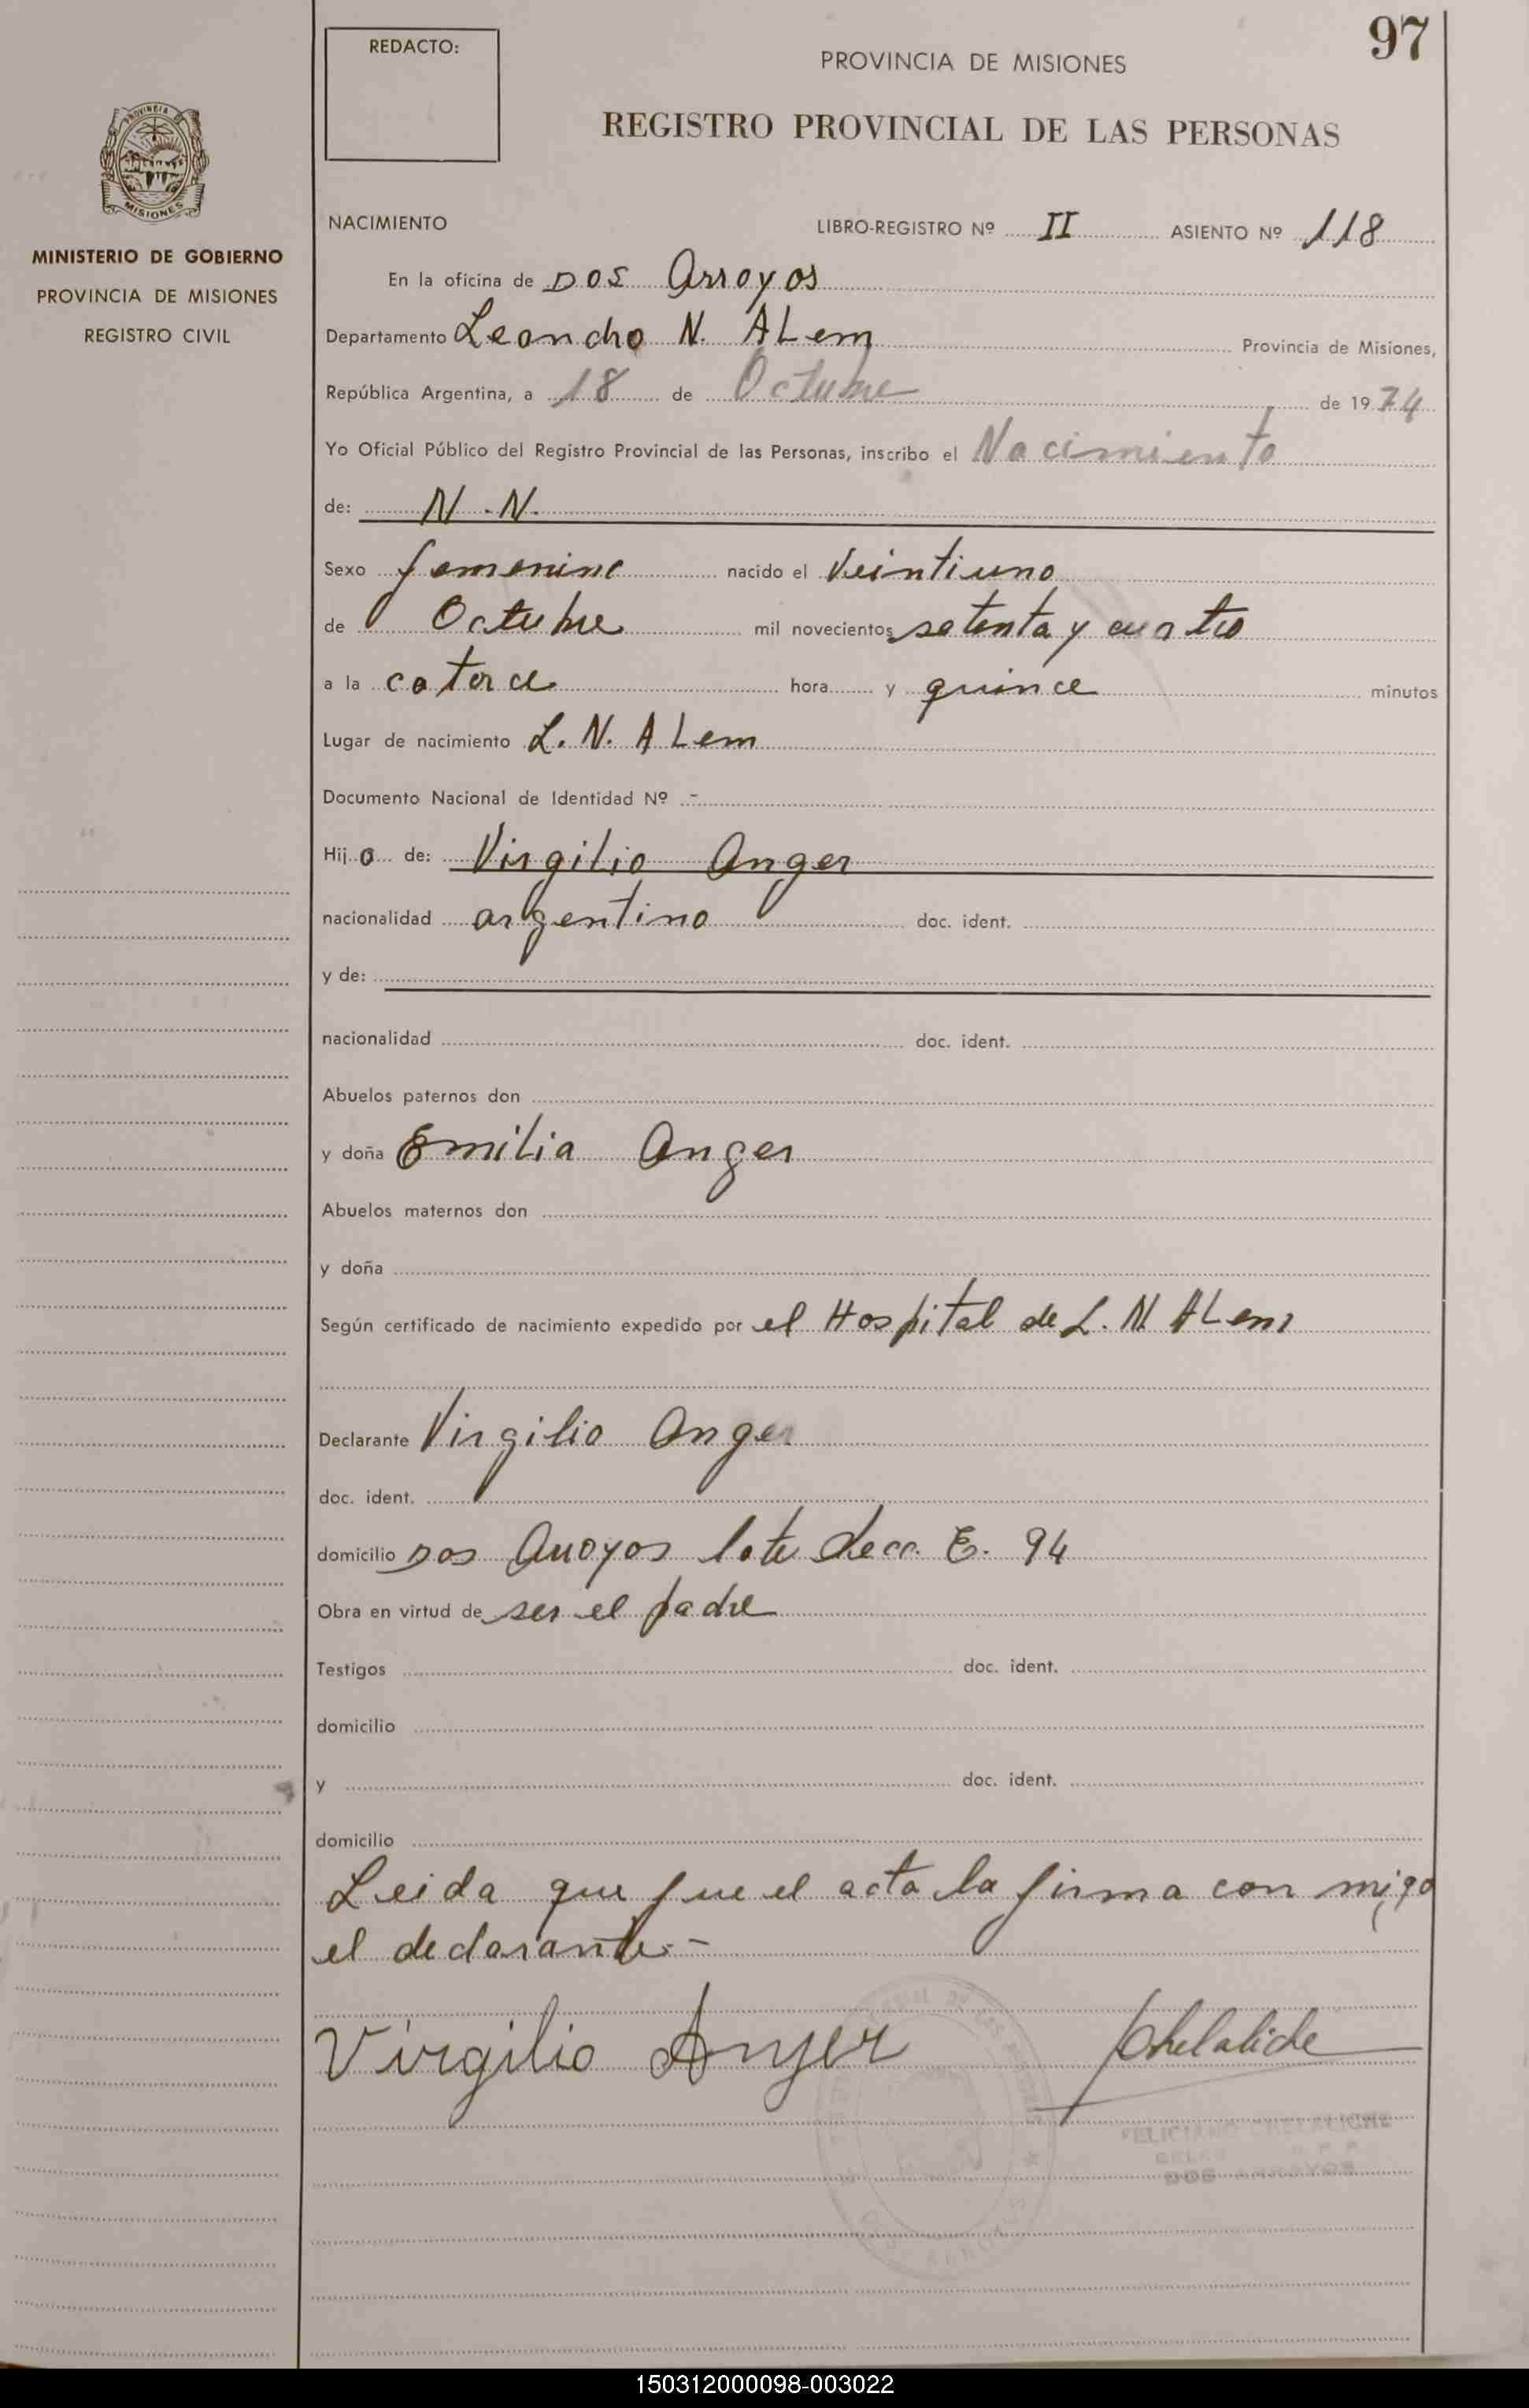 97
REDACTO:
PROVINCIA DE MISIONES
REGISTRO PROVINCIAL DE LAS PERSONAS
PROVINCIA DE
MISIONES
MINISTERIO DE GOBIERNO
PROVINCIA DE MISIONES
REGISTRO CIVIL
NACIMIENTO LIBRO-REGISTRO Nº II ASIENTO Nº 118
En la oficina de DOS Arroyos
Departamento Leandro N. ALem Provincia de Misiones,
República Argentina, a 18 de Octubre de 1974
Yo Oficial Público del Registro Provincial de las Personas, inscribo el Nacimiento
de: N.N.
Sexo femenino nacido el Veintiuno
de Octubre mil novecientos setenta y cuatro
a la catorce hora y quince minutos
Lugar de nacimiento L. N. ALem
Documento Nacional de Identidad Nº -
Hija de: Virgilio Anger
nacionalidad argentino doc. ident.
y de:
nacionalidad doc. ident.
Abuelos paternos don
y doña Emilia Anger
Abuelos maternos don
y doña
Según certificado de nacimiento expedido por el Hospital de L. N. ALem
Declarante Virgilio Anger
doc. ident.
domicilio Dos Arroyos lote Secc. E. 94
Obra en virtud de ser el padre
Testigos doc. ident.
domicilio
y doc. ident.
domicilio
Leida que fue el acta la firma con migo
el declarante.-
Virgilio Anger Chelaliche
FELICIANO CHELALICHE
DOS ARROYOS
150312000098-003022